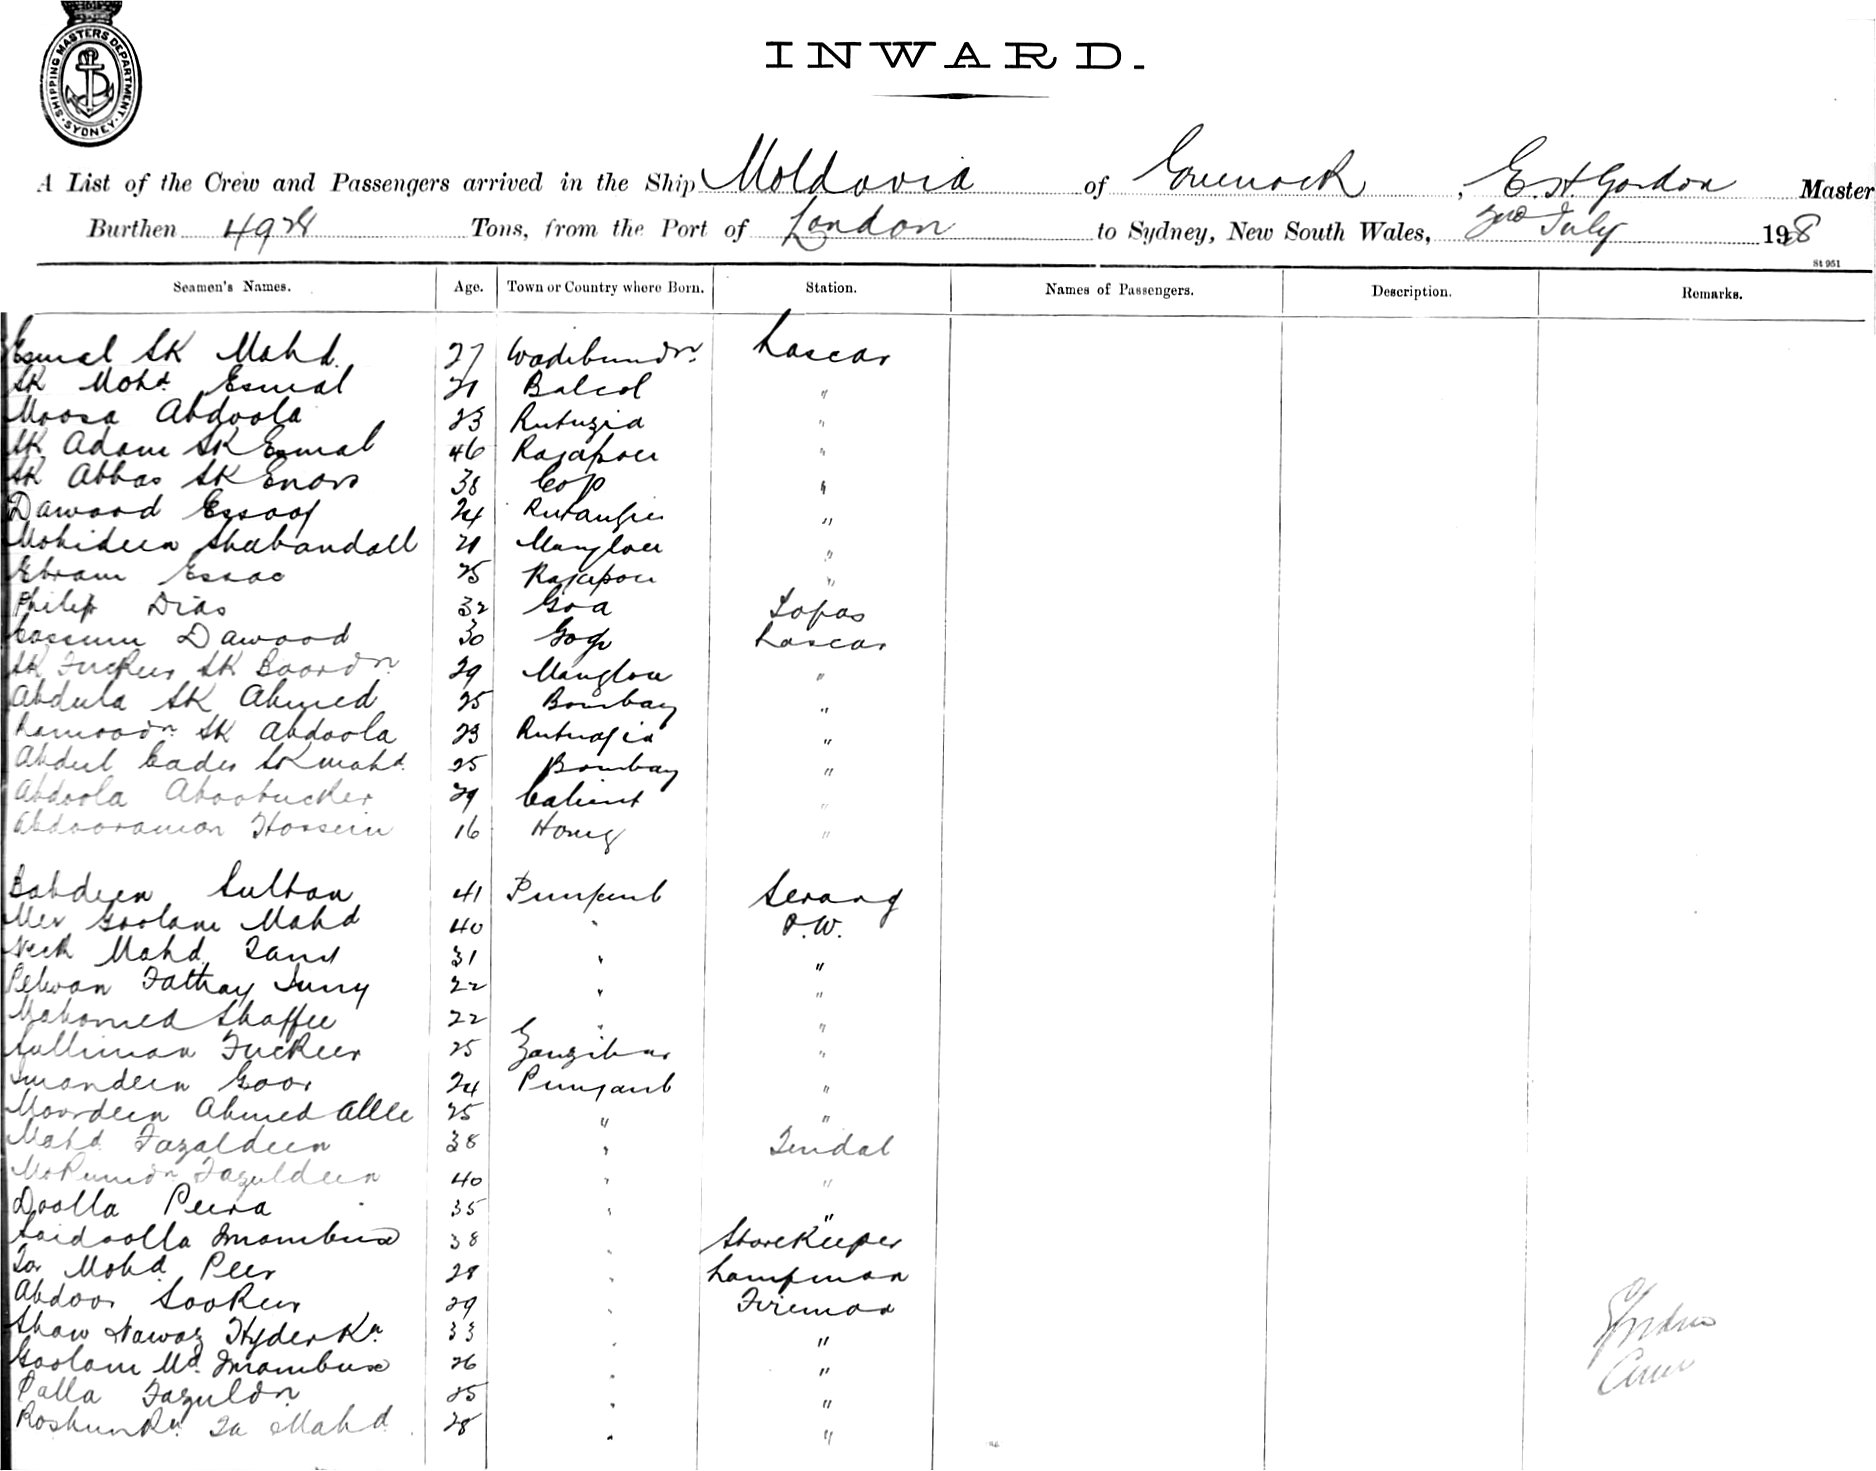 SHIPPING MASTERS DEPARTMENT. SYDNEY.
INWARD.
A List of the Crew and Passengers arrived in the Ship Moldavia of Greenock, E. H. Gordon Master
Burthen 4928 Tons, from the Port of London to Sydney, New South Wales, July 1908
St 951
Seamen's Names. Age. Town or Country where Born. Station. Names of Passengers. Description. Remarks.
Esmal SK Mahd. 27 Wadibundr. Lascar
SK Mohd Esmal 21 Balcol "
Moosa Abdoola 23 Rutuzia "
SK Adam SK Esmal 46 Rajapou "
SK Abbas SK Enars 38 Cop "
Dawood Essoof 24 "
Mohideen Shabandall 21 Manglou "
Ebram Essac 25 Rajapou "
Philip Dias 32 Goa Topas
Cassum Dawood 30 Gogo Lascar
SK Fuckeer SK Boordn 29 Manglou "
Abdula SK Ahmed 25 Bombay "
SK Abdoola 23 "
Abdul Cader SK Mahd. 25 Bombay "
Abdoola Aboobucker 29 Calicut "
Abdooraman Hossein 16 "
Bobdeen Sultan 41 Punjaub Serang
Mer Goolam Mahd 40 " P.W.
Neck Mahd 31 " "
Pelwan Fattay 22 " "
Mahomed Shaffee 22 " "
Sulliman Fuckeer 25 Zanzibar "
Imandeen Goor 24 Punjaub "
Noordeen Ahmed Allee 25 " "
Mahd Fazaldeen 38 " Tindal
Fazuldeen 40 " "
Doolla Peera 35 " "
Saidoolla Imambux 38 " StoreKeeper
Mohd. Peer 28 " Lampman
Abdool Sookeer 29 " Fireman
Shaw Nawaz Hyder Kn. 33 " "
Goolam Md. Imambux 26 " "
Palla Fazuldn 25 " "
Mahd. 28 " "